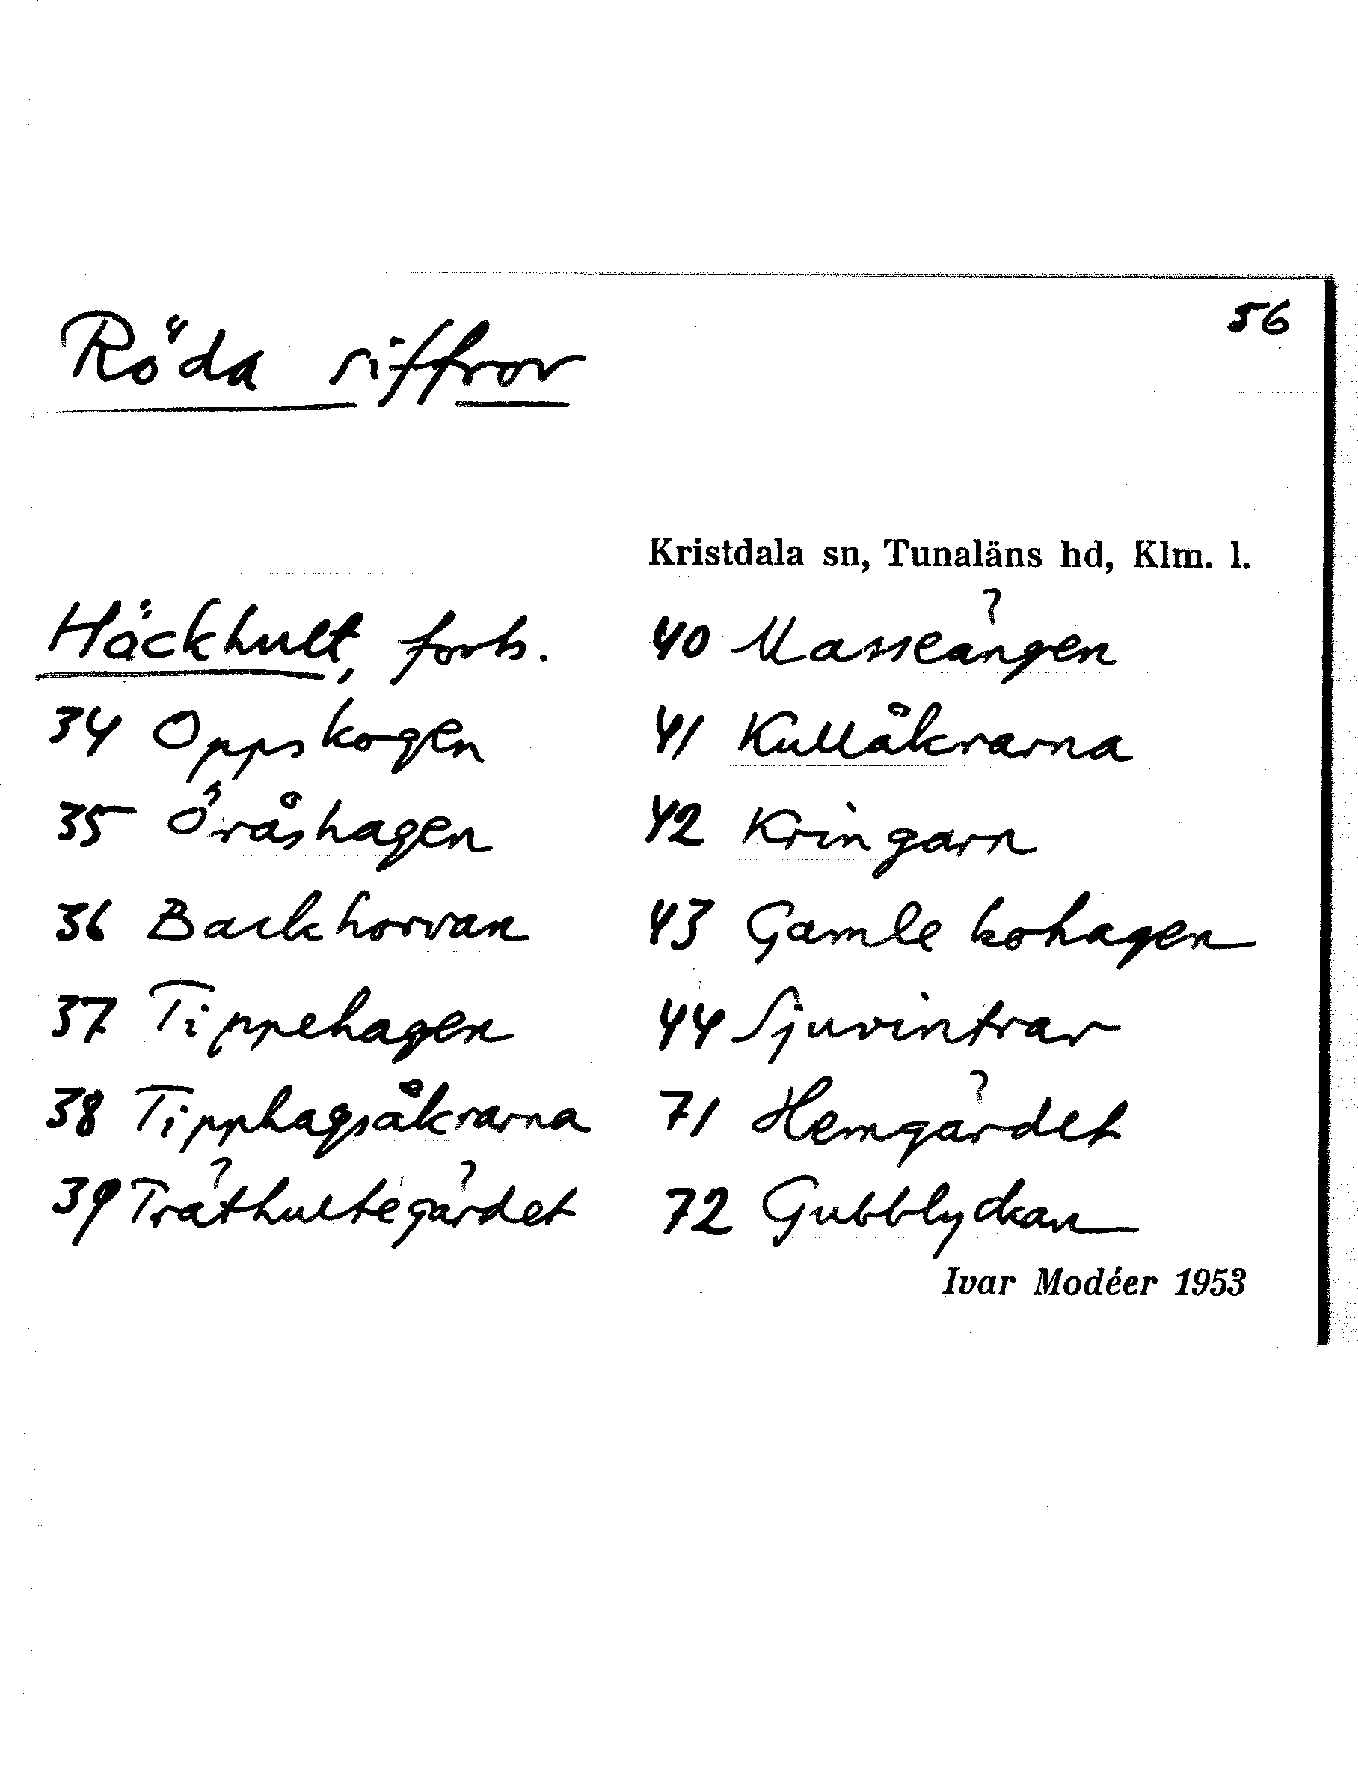 56
Röda siffror
Kristdala sn, Tunaläns hd, Klm. l.
Häckhult, forts.
34 Oppskogen
35 Öråshagen
36 Backhorvan
37 Tippehagen
38 Tipphagsåkrarna
39 Träthultegärdet
40 Masseängen
41 Kullåkrarna
42 Kringarn
43 Gamle kohagen
44 Sjuvintrar
71 Hemgärdet
72 Gubblyckan
Ivar Modéer 1953